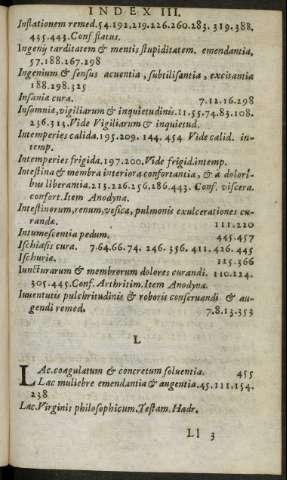 INDEX III.
Inflationem remed. 54.192.219.226.260.283. 319.388.
435.443. Conf flatus.
Ingenij tarditatem & mentis stupiditatem. emendantia,
57.188.267.298
Ingenium & sensus acuentia, subtilisantia, excitantia
188.298.325
Insania cura. 7.12.16.298
Insomnia, vigiliarum & inquietudinis. 11.55.74.83.108.
236.314. Vide Vigiliarum & inquietud.
Intemperies calida. 195.209. 144. 454 Vide calid. in-
temp.
Intemperies frigida. 197.200. Vide frigid. intemp.
Intestina & membra interiora confortantia, & a dolori-
bus liberantia. 213.226.256.286.443. Conf. viscera.
confort. Item Anodyna.
Intestinorum, renum, vesicæ, pulmonis exulcerationes cu-
randæ. 111.220
Intumescentia pedum. 445.457
Ischiasis cura. 7.64.66.74. 246. 356. 411.426.445
Ischuria. 125.366
Iuncturarum & membrorum dolores curandi. 110.124.
305.445. Conf. Arthritim. Item Anodyna.
Iuuentutis pulchritudinis & roboris conseruandi & au-
gendi remed. 7.8.13.353
L
LAc. coagulatum & concretum soluentia. 455
Lac muliebre emendantia & augentia. 45.111.154.
238
Lac. Virginis philosophicum. Testam. Hadr.
Ll 3